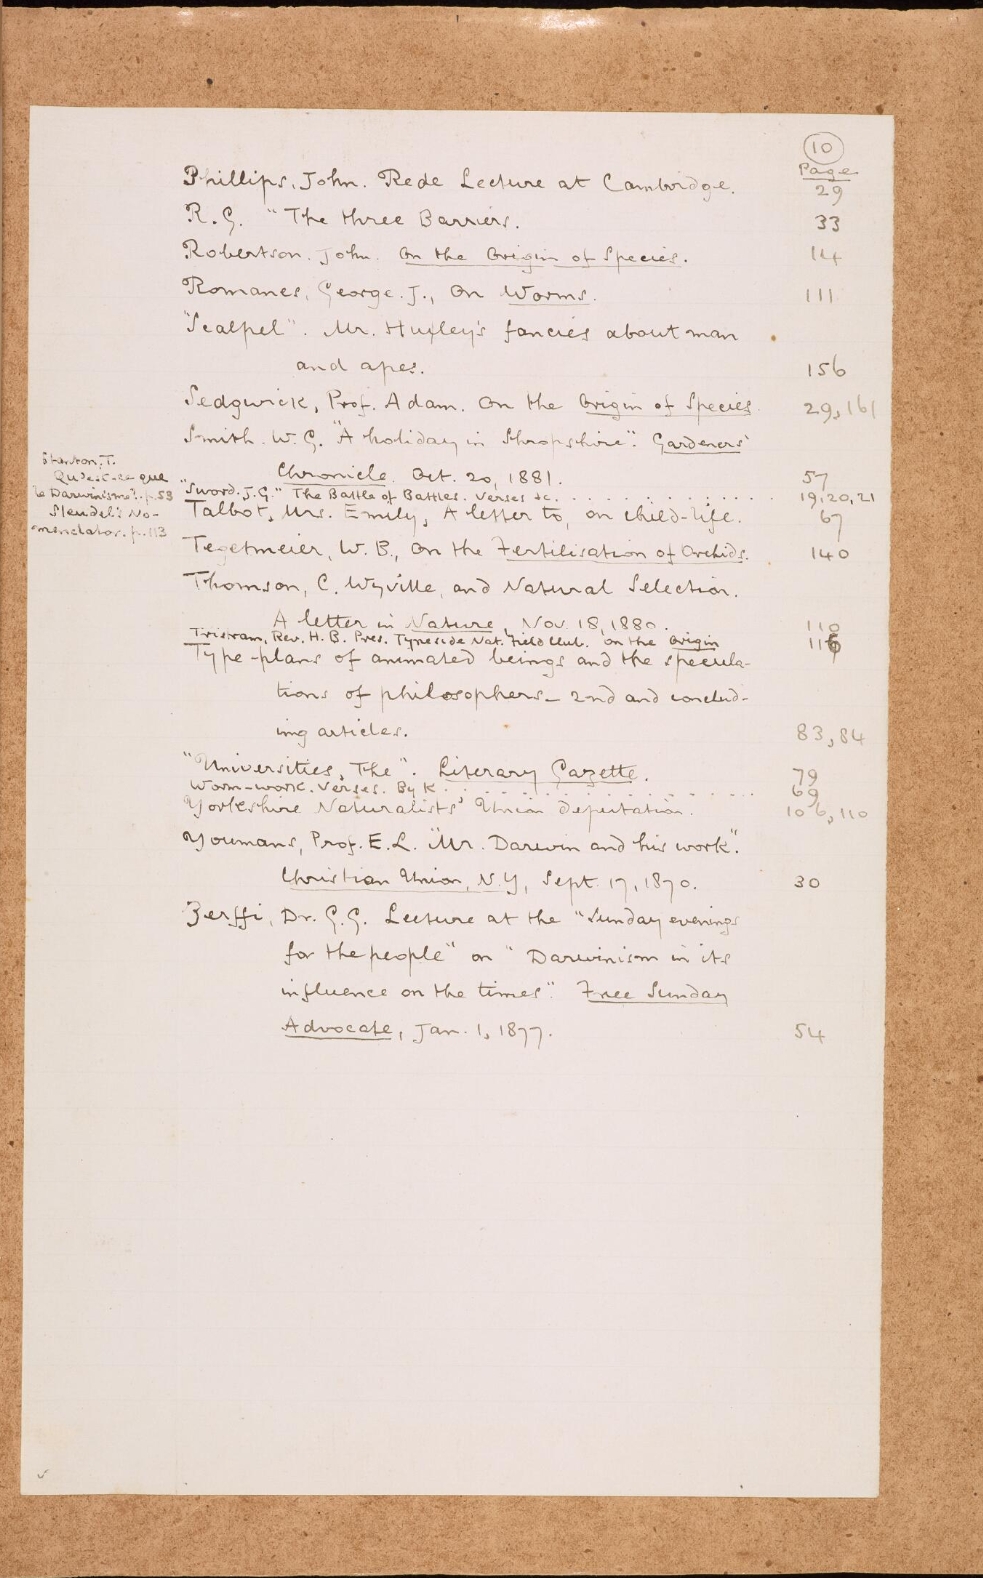 10
Page
Phillips, John. Rede Lecture at Cambridge. 29
R.G. "The three Barriers. 33
Robertson. John. On the Origin of Species. 14
Romanes, George. J., On Worms. 111
"Scalpel". Mr. Huxley's fancies about man
and apes. 156
Sedgwick, Prof. Adam. On the Origin of Species. 29, 161
Smith. W.G. "A holiday in Shropshire". Gardeners'
Chronicle. Oct. 20, 1881. 57
T.
Qu'est-ce que
le Darwinisme?. p. 53
Steudel's No-
menclator. p. 113
"Sword. J.G." The Battle of Battles. Verses &c. 19, 20, 21
Talbot, Mrs. Emily, A letter to, on child-life. 67
Tegetmeier, W. B., On the Fertilisation of Orchids. 140
Thomson, C. Wyville, and Natural Selection.
A letter in Nature, Nov. 18, 1880. 110
Tristram, Rev. H. B. Pres. Tyneside Nat. Field Club. On the Origin 116
Type-plans of animated beings and the specula-
tions of philosophers – 2nd and conclud-
ing articles. 83, 84
"Universities, The". Literary Gazette. 79
Worm-work. Verses. By K. 69
Yorkshire Naturalists' Union deputation. 106, 110
Youmans, Prof. E.L. "Mr. Darwin and his work".
Christian Union, N.Y, Sept. 17, 1870. 30
Zerffi, Dr. G.G. Lecture at the "Sunday evenings
for the people" on "Darwinism in its
influence on the times". Free Sunday
Advocate, Jan. 1, 1877. 54